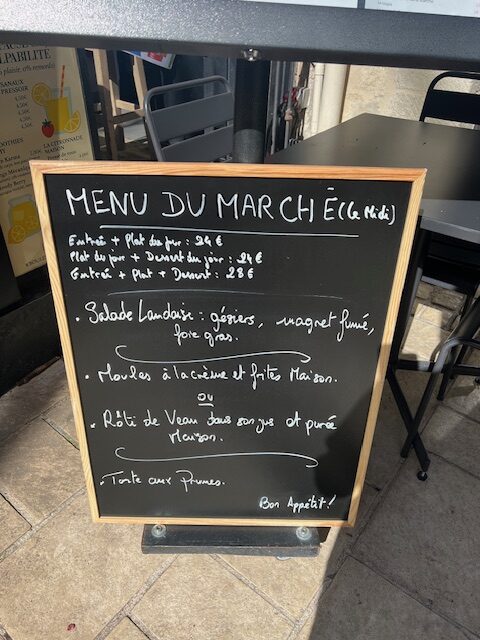 MENU DU MARCHÉ (le Midi)
Entrée + Plat du jour : 24 €
Plat du jour + Dessert du jour : 24 €
Entrée + Plat + Dessert : 28 €
• Salade Landaise : gésiers, magret fumé,
foie gras.
• Moules à la crème et frites Maison.
ou
• Rôti de Veau dans son jus et purée
Maison.
• Tarte aux Prunes.
Bon Appétit !
PABILITE
plaisir, 0% remords
SANAUX
PRESSOIR
LA CITRONNADE
MAISON